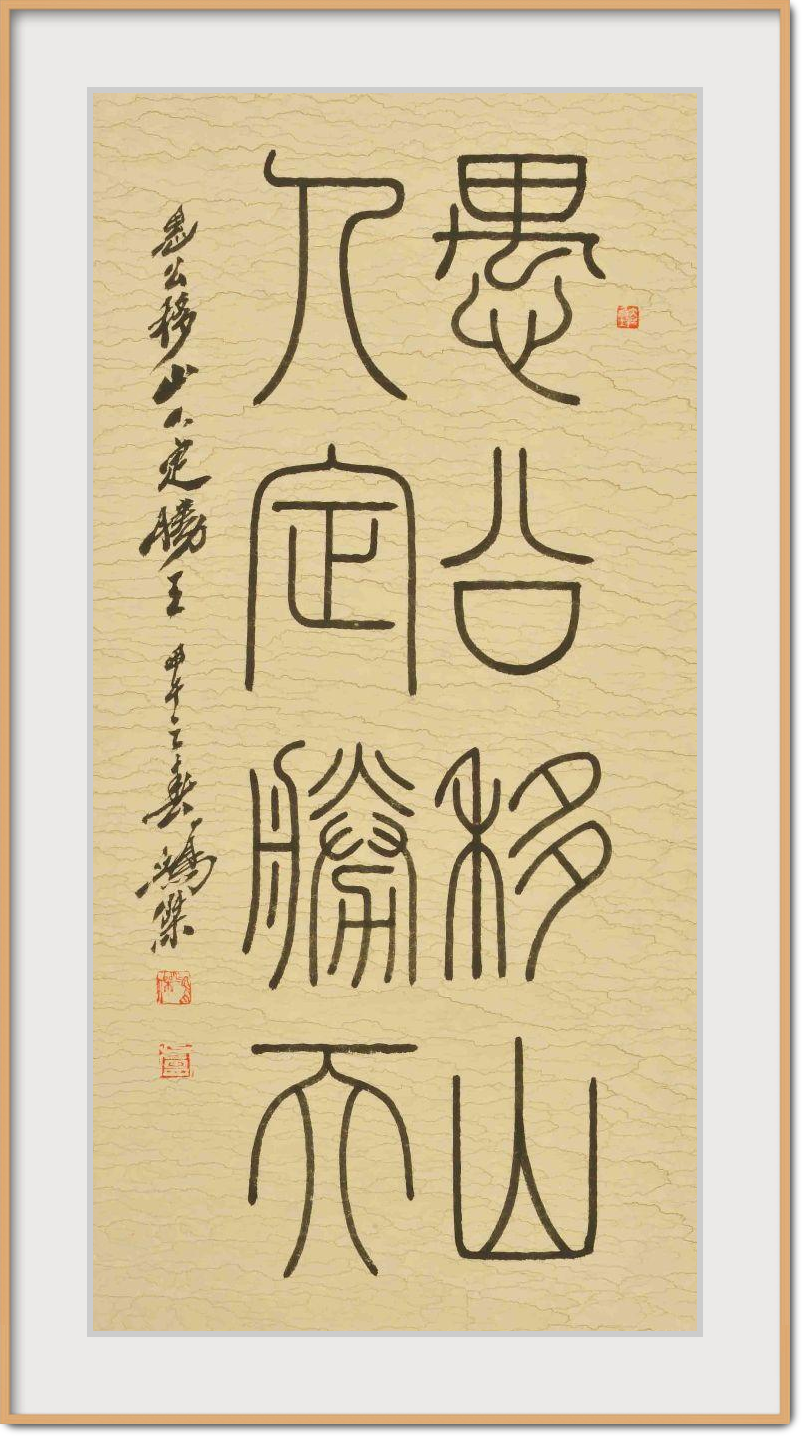 愚公移山
人定勝天
愚公移山人定勝天 甲午之春 鴻傑